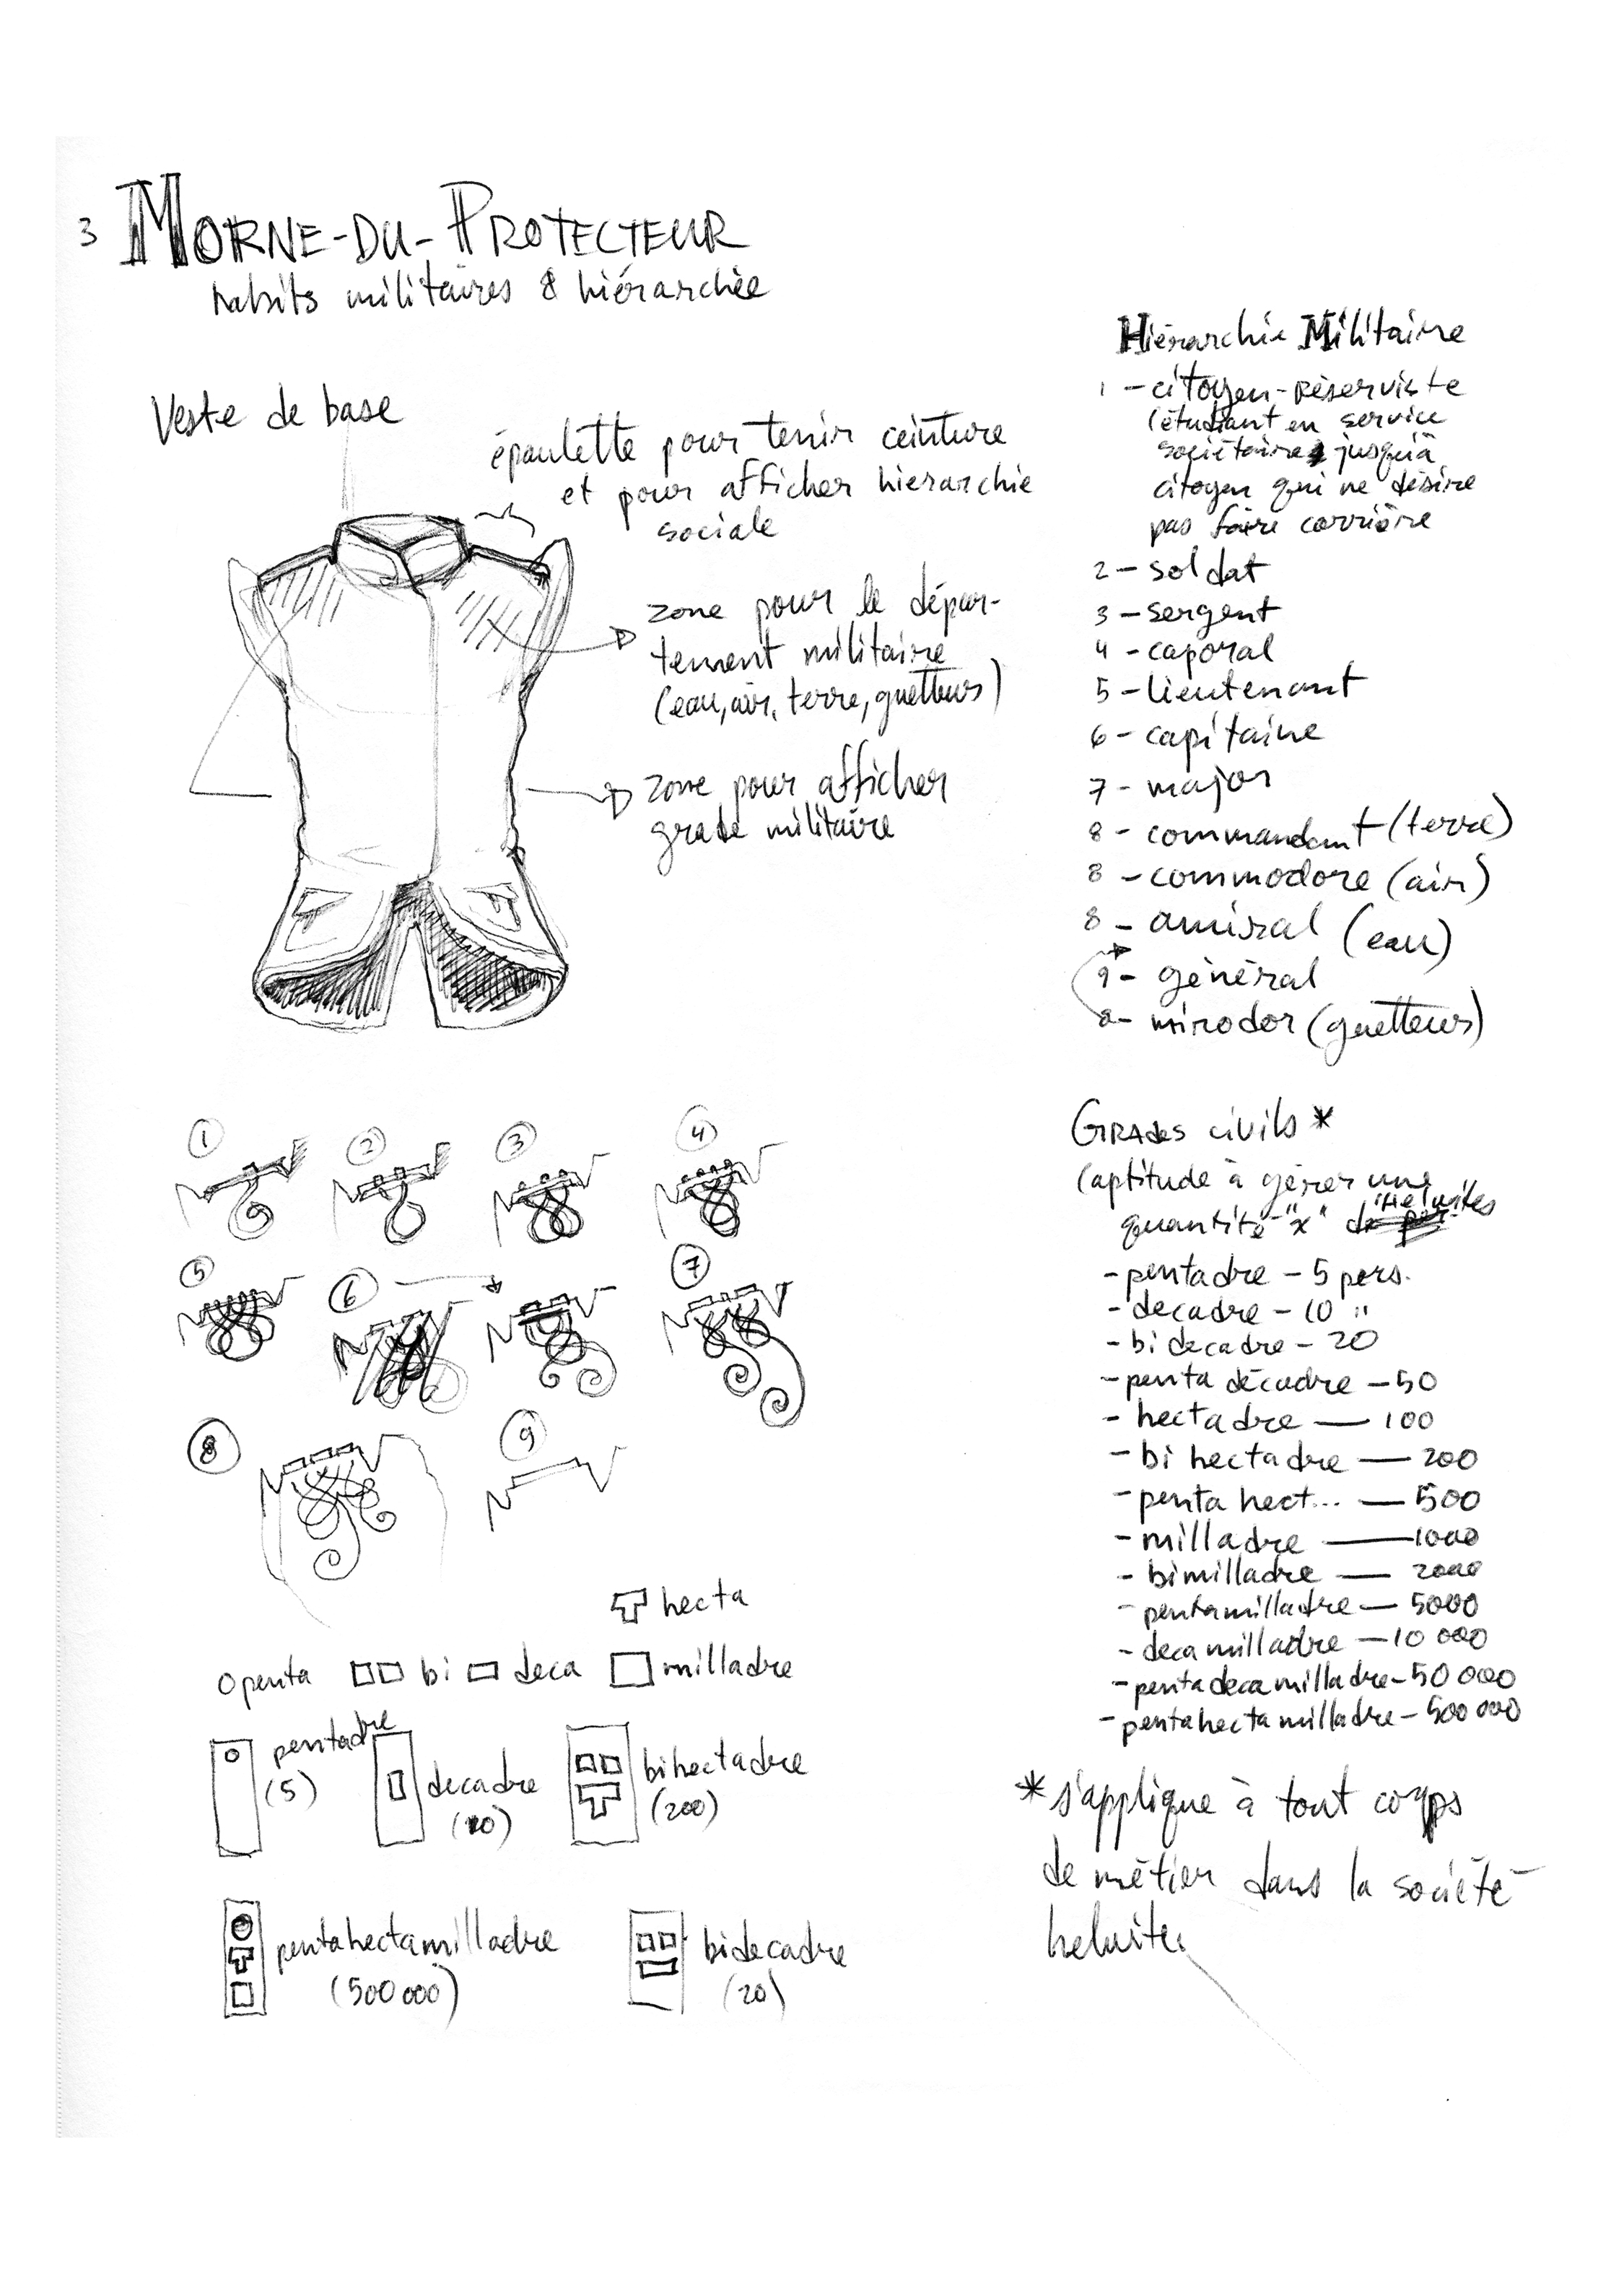 3 MORNE-DU-PROTECTEUR
habits militaires & hiérarchie
Veste de base
épaulette pour tenir ceinture
et pour afficher hierarchie
sociale
zone pour le dépar-
tement militaire
(eau, air, terre, guetteurs)
zone pour afficher
grade militaire
1
2
3
4
5
6
7
8
9
hecta
penta bi deca milladre
pentadre
(5)
decadre
(10)
bihectadre
(200)
pentahectamilladre
(500 000)
bidecadre
(20)
Hiérarchie Militaire
1 - citoyen-réserviste
(étudiant en service
sociétaire jusqu'à
citoyen qui ne désire
pas faire carrière
2 - soldat
3 - sergent
4 - caporal
5 - lieutenant
6 - capitaine
7 - major
8 - commandant (terre)
8 - commodore (air)
8 - amiral (eau)
9 - général
8 - mirador (guetteurs)
GRADES civils *
(aptitude à gérer une
quantité "x"
- pentadre - 5 pers.
- decadre - 10 "
- bidecadre - 20
- penta décadre - 50
- hectadre - 100
- bi hectadre - 200
- penta hect... - 500
- milladre - 1000
- bimilladre - 2000
- pentamilladre - 5000
- deca milladre - 10 000
- penta deca milladre - 50 000
- pentahecta milladre - 500 000
* s'applique à tout corps
de métier dans la société